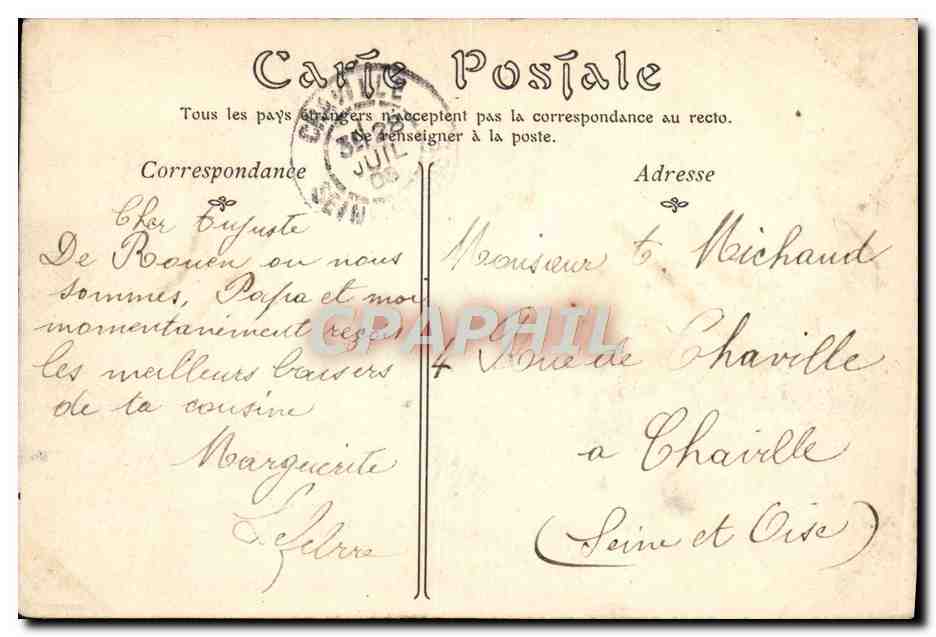 Carte Postale
Tous les pays étrangers n'acceptent pas la correspondance au recto.
Se renseigner à la poste.
CHAVILLE
28
JUIL
SEINE
Correspondance
Cher Auguste
De Rouen ou nous
sommes, Papa et moi
momentanément reçois
les meilleurs baisers
de ta cousine
Marguerite
Lefebvre
Adresse
Monsieur Michaud
4 Rue de Chaville
a Chaville
(Seine et Oise)
CPAPHIL